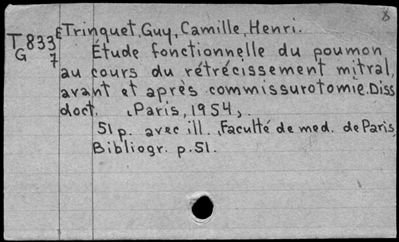 8
T833E Trinquet, Guy, Camille, Henri.
G 7 Étude fonctionnelle du poumon
au cours du rétrécissement mitral,
avant et après commissurotomie. Diss
doct. Paris, 1954,
51 p. avec ill. Faculté de med. de Paris
Bibliogr. p. 51.